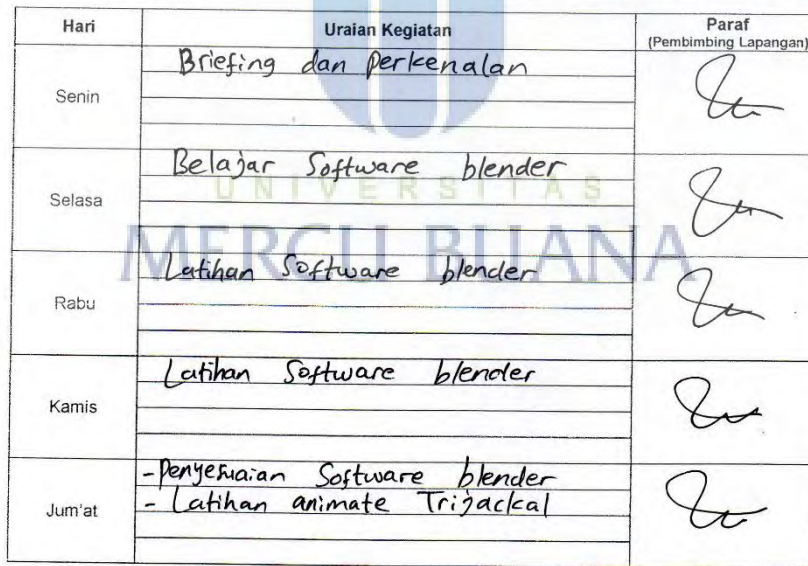 Hari Uraian Kegiatan Paraf
(Pembimbing Lapangan)
Senin
Briefing dan Perkenalan
Selasa
Belajar Software blender
UNIVERSITAS
MERCU BUANA
Rabu
Latihan Software blender
Kamis
Latihan Software blender
Jum'at
-Penyesuaian Software blender
- Latihan animate Trijackal